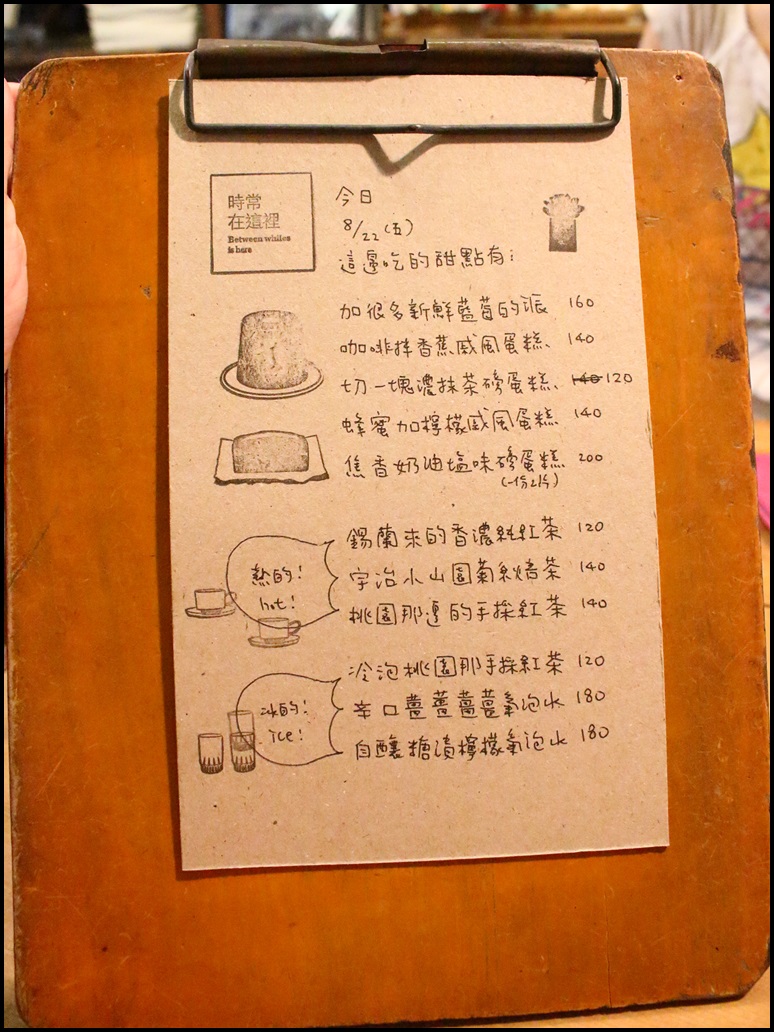 時常
在這裡
Between whiles
is here
今日
8/22 (五)
這邊吃的甜點有:
加很多新鮮藍莓的派 160
咖啡拌香蕉戚風蛋糕、 140
切一塊濃抹茶磅蛋糕、 140 120
蜂蜜加檸檬戚風蛋糕 140
焦香奶油塩味磅蛋糕 200
(一份2片)
熱的!
hot!
錫蘭來的香濃純紅茶 120
宇治小山園菊紋焙茶 140
桃園那邊的手採紅茶 140
冰的!
ice!
冷泡桃園那手採紅茶 120
辛口薑薑薑薑氣泡水 180
自釀糖漬檸檬氣泡水 180